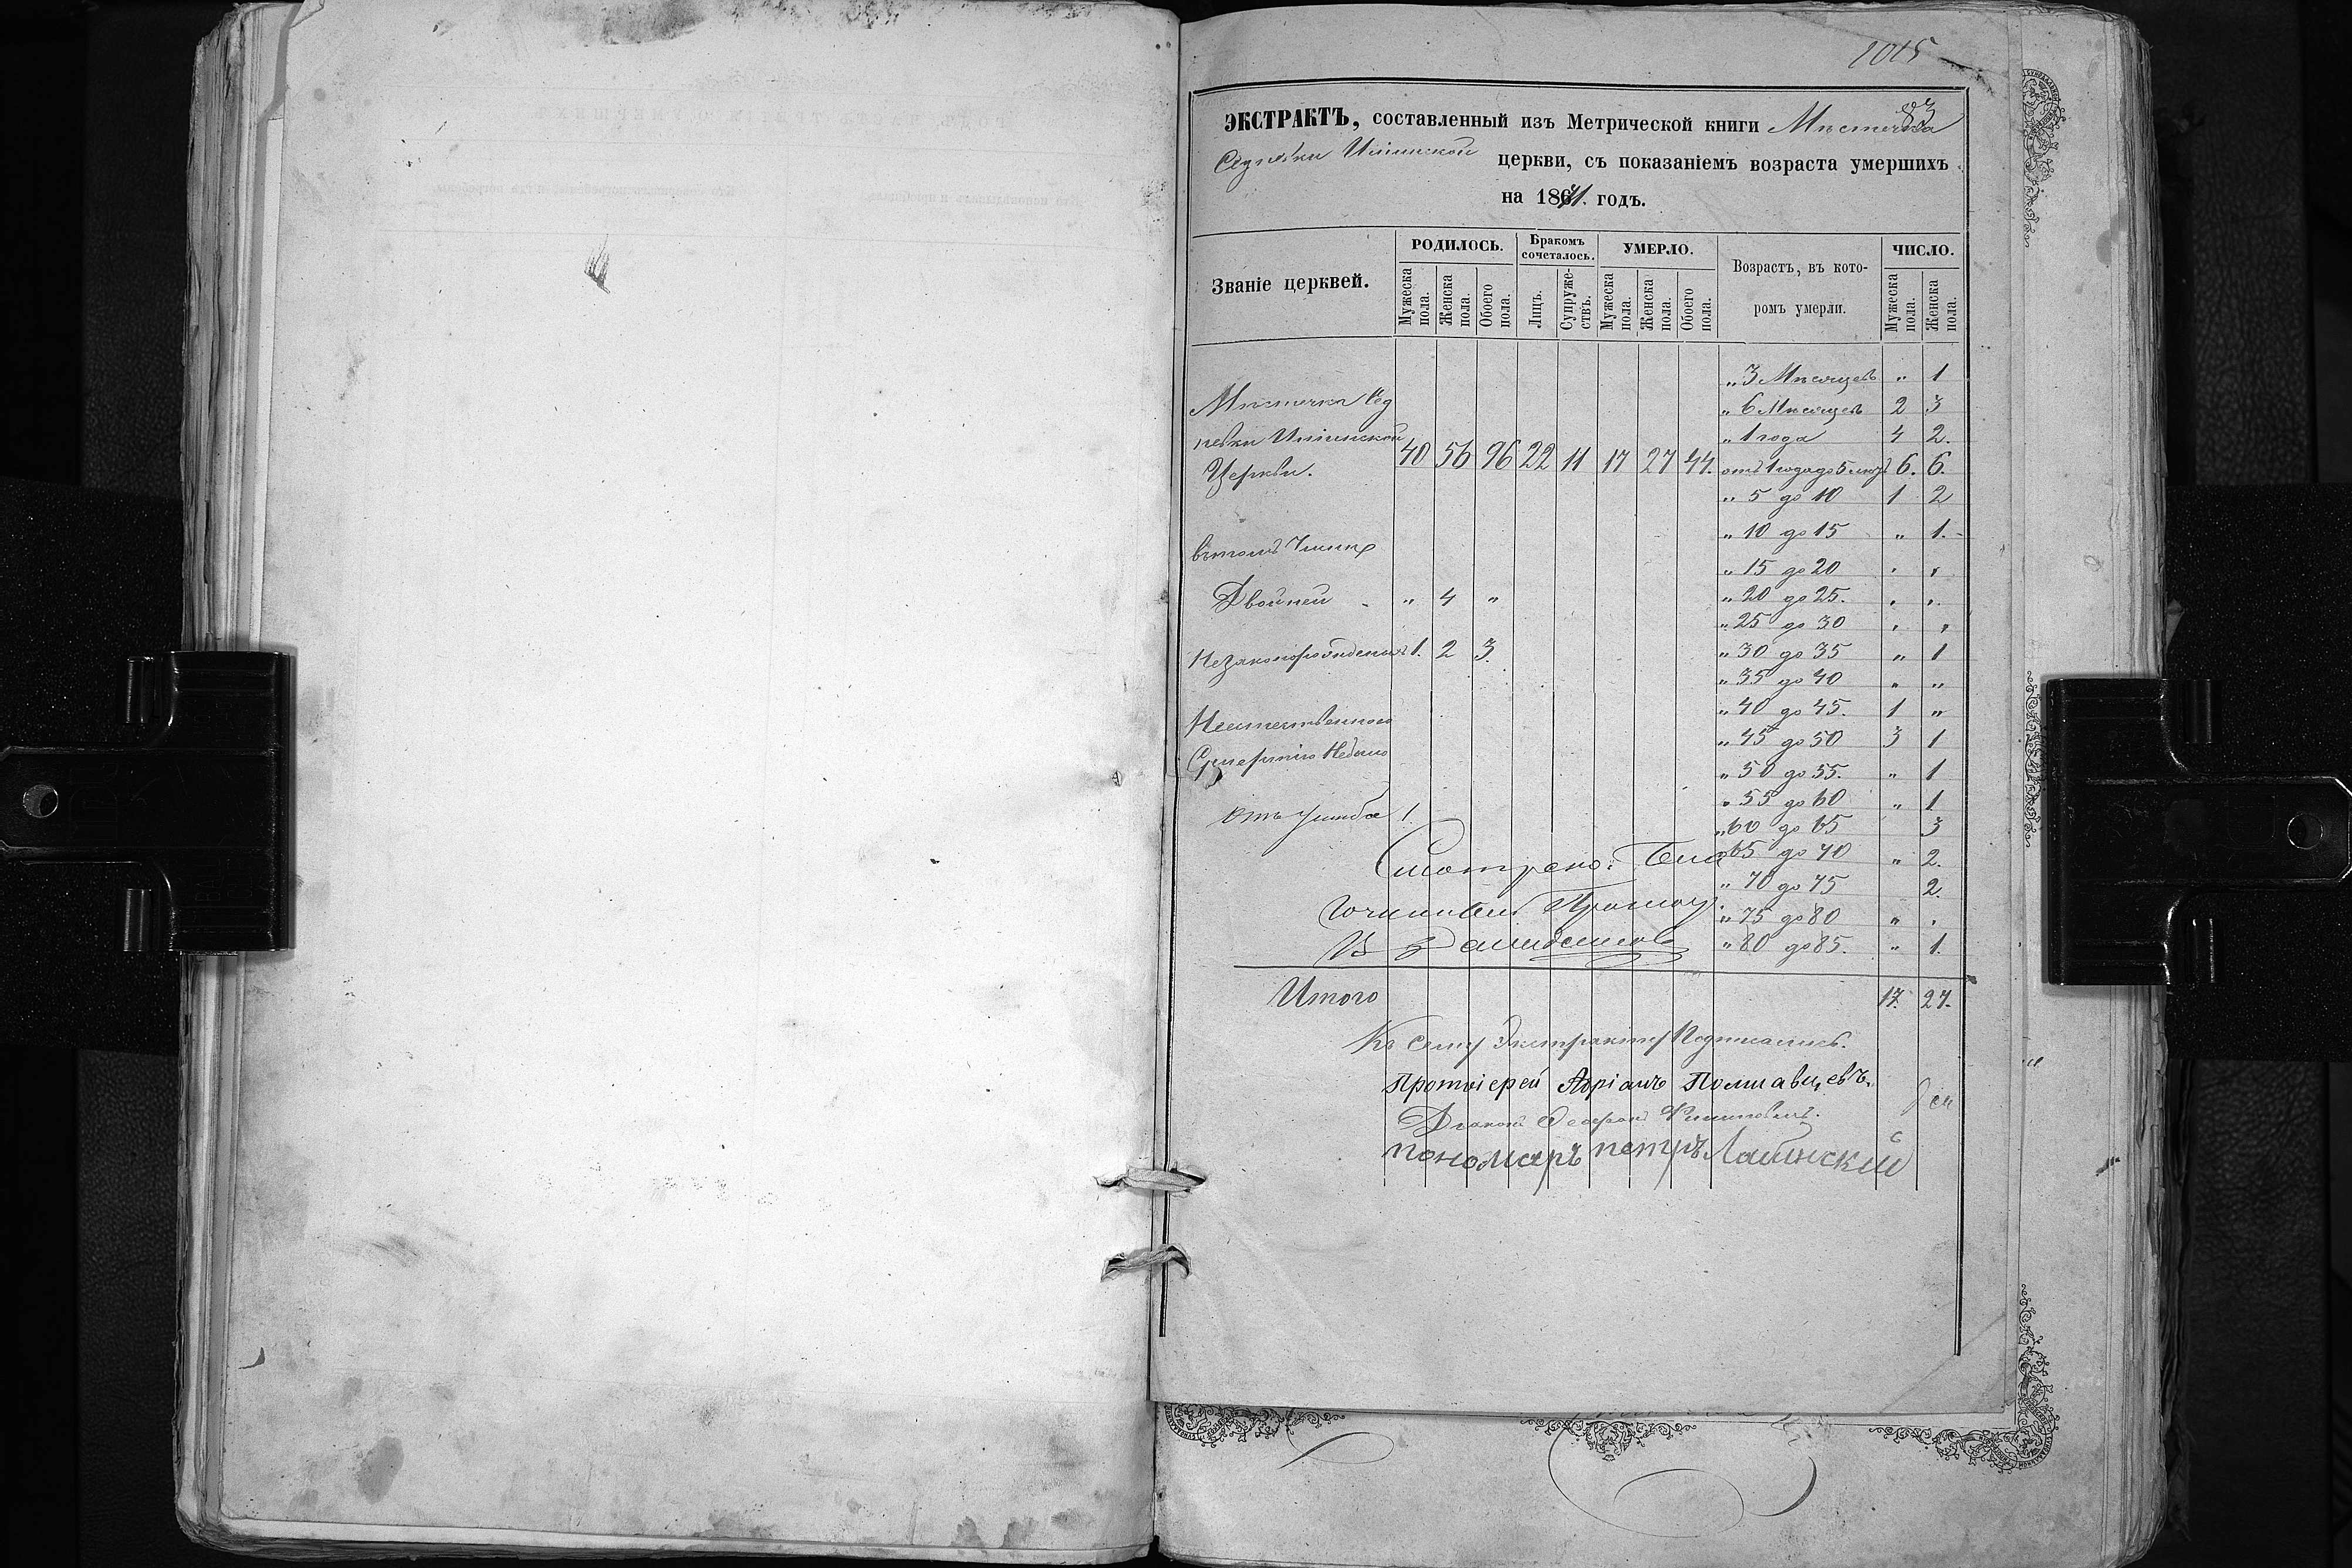 1015
83
ЭКСТРАКТЪ, составленный изъ Метрической книги Мѣстечка
Седнева Иліинской церкви, съ показаніемъ возраста умершихъ
на 1871. годъ.
Званіе церквей.
РОДИЛОСЬ.
Бракомъ сочеталось.
УМЕРЛО.
Возрастъ, въ которомъ умерли.
ЧИСЛО.
Мужеска пола.
Женска пола.
Обоего пола.
Лицъ.
Супружествъ.
Мужеска пола.
Женска пола.
Обоего пола.
Мужеска пола.
Женска пола.
„ 3 Мѣсяцевъ „ 1
Мѣстечка
„ 6 Мѣсяцевъ 2 3
Иліинской
„ 1 года 4 2.
Церкви. 40 56 96 22 11 17 27 44. отъ 1 года до 5 лѣтъ 6. 6.
„ 5 до 10 1 2
„ 10 до 15 „ 1.
въ томъ Числѣ
„ 15 до 20 „ „
Двойней „ 4 „
„ 20 до 25. „ „
„ 25 до 30 „ „
Незаконорожденыхъ 1. 2 3.
„ 30 до 35 „ 1
„ 35 до 40 „ „
„ 40 до 45. 1 „
„ 45 до 50 3 1
„ 50 до 55. „ 1
„ 55 до 60 „ 1
отъ ушиба 1.
„ 60 до 65 3
Смотрено:
„ 65 до 70 „ 2.
„ 70 до 75 2.
„ 75 до 80 „ „
„ 80 до 85. „ 1.
Итого 17. 27.
Къ сему Экстракту Подписались.
Протоіерей Адріанъ Полшавцевъ.
Діаконъ
пономаръ петръ Лабинский